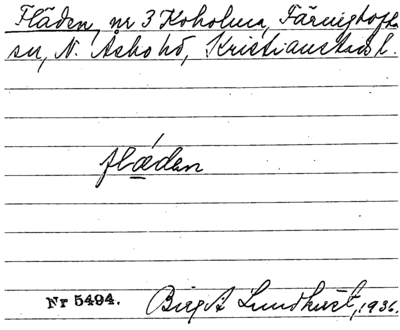 Fläden, nr 3 Koholma, Färingtofta
sn, N. Åsbo hd, Kristianstads l.
flæ´den
Nr 5494. Birgit Lundkvist, 1936.